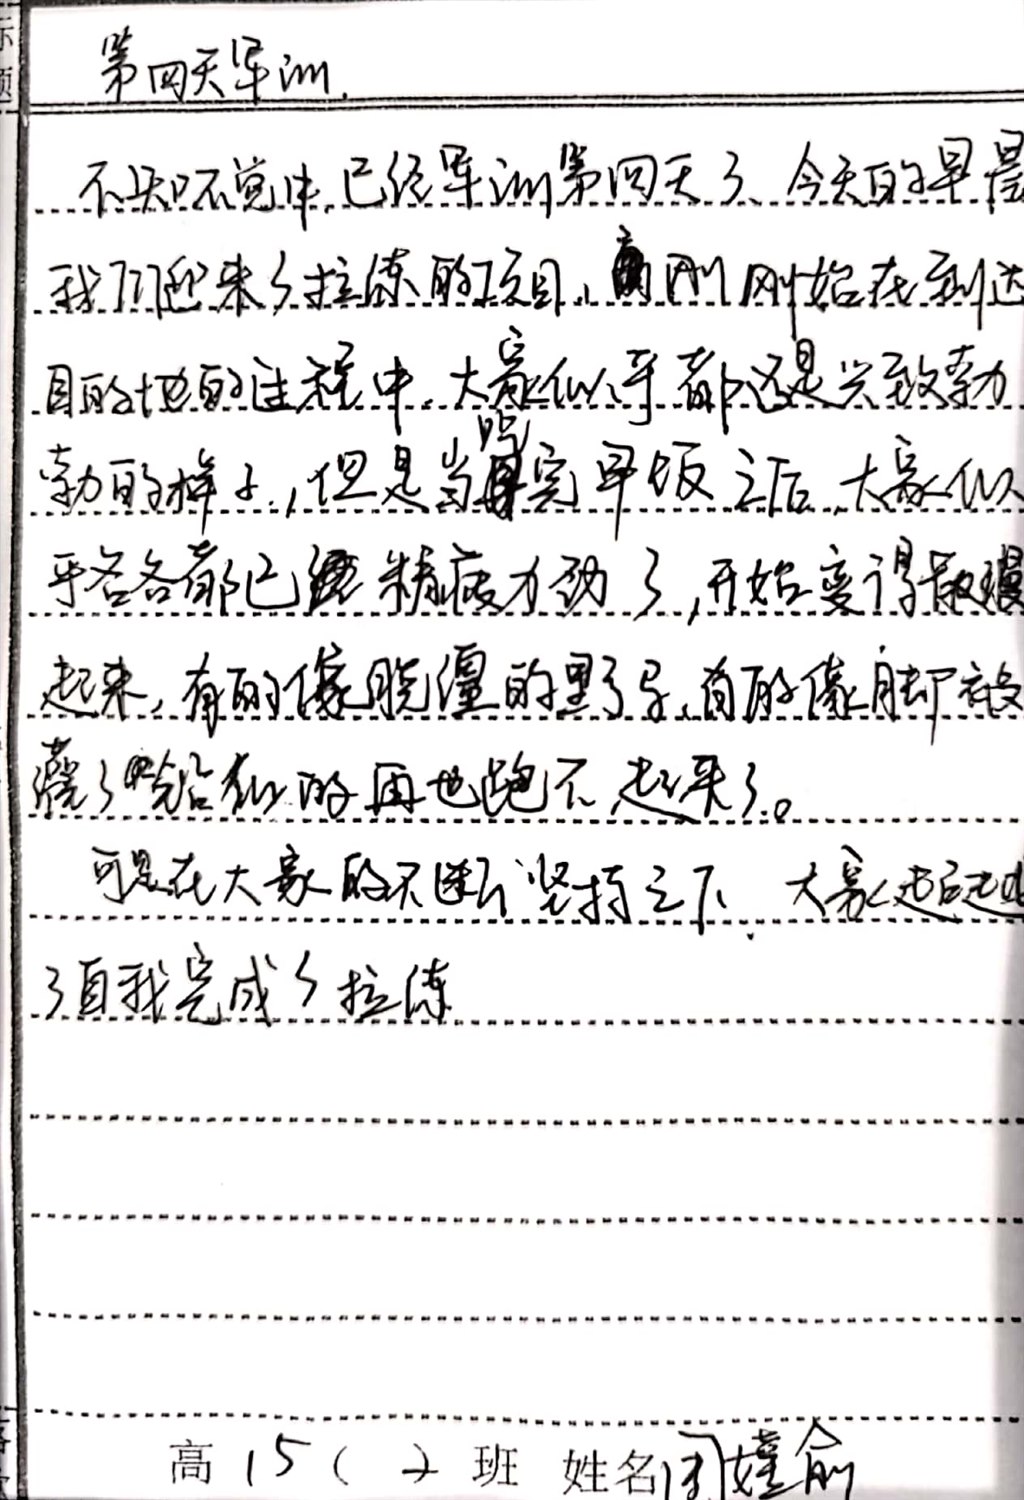 标题
第四天军训.
不知不觉中,已经军训第四天了、今天的早晨
我们迎来了拉练的项目,刚刚始在到达
目的地的过程中,大家似乎都还是兴致勃
勃的样子,但是当吃完早饭之后,大家似
乎各各都已经精疲力劲了,开始变得散漫
起来,有的像脱缰的野马,有的像脚被
灌了铅似的再也跑不起来了。
可是在大家的不断坚持之下.大家超越
了自我完成了拉练
高15(2)班 姓名周